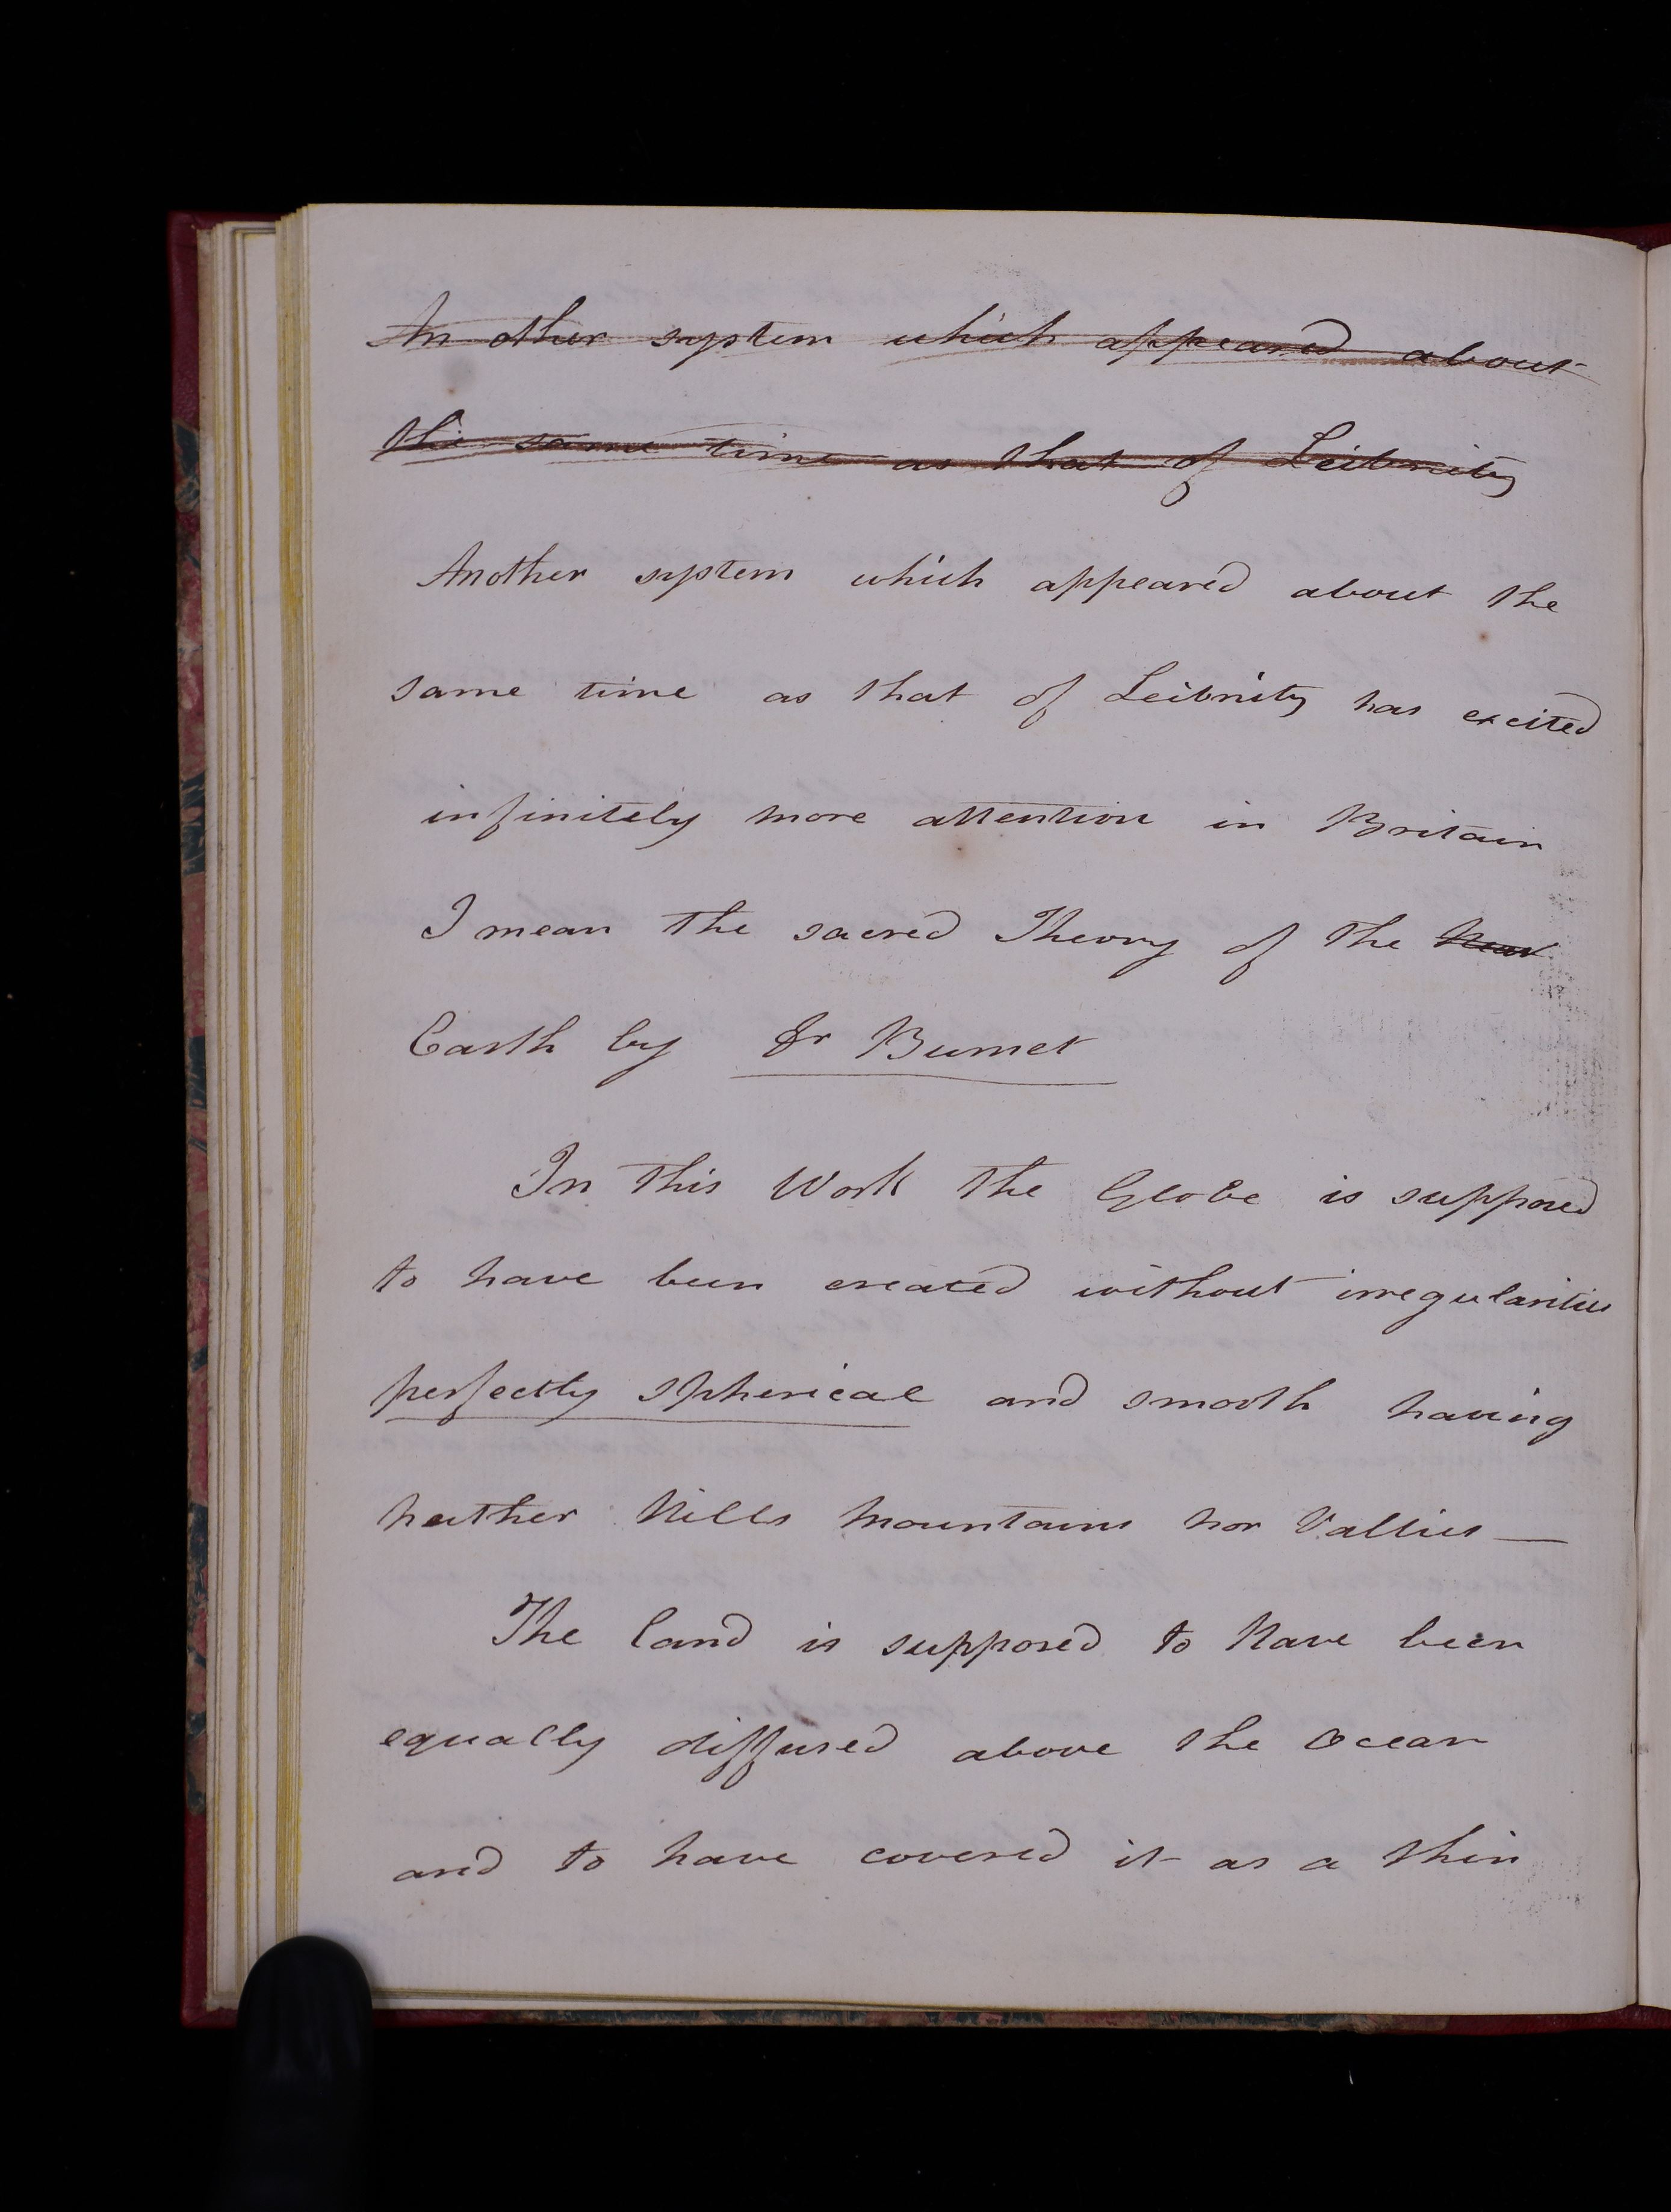 An other system which appeared about
the same time as that of Leibnitz
Another system which appeared about the
same time as that of Leibnitz has excited
infinitely more attention in Britain
I mean the sacred Theory of the
Earth by Dr Burnet
In this Work the Globe is supposed
to have been created without irregularities
perfectly spherical and smooth having
neither Hills Mountains nor Vallies —
The Land is supposed to have been
equally diffused above the Ocean
and to have covered it as a thin